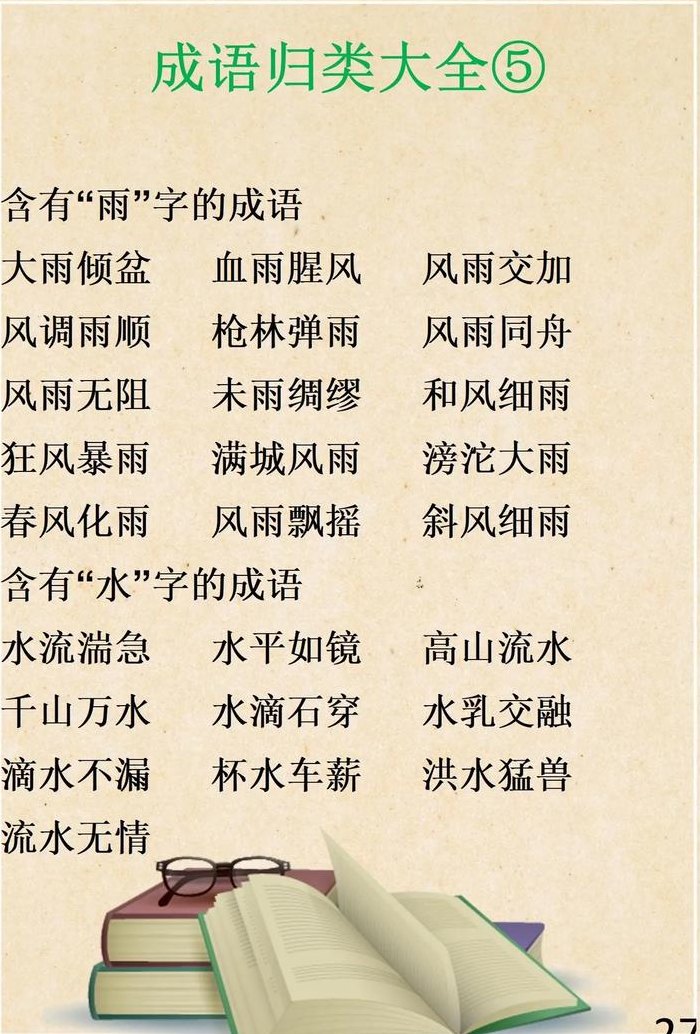 成语归类大全⑤
含有“雨”字的成语
大雨倾盆 血雨腥风 风雨交加
风调雨顺 枪林弹雨 风雨同舟
风雨无阻 未雨绸缪 和风细雨
狂风暴雨 满城风雨 滂沱大雨
春风化雨 风雨飘摇 斜风细雨
含有“水”字的成语
水流湍急 水平如镜 高山流水
千山万水 水滴石穿 水乳交融
滴水不漏 杯水车薪 洪水猛兽
流水无情
27